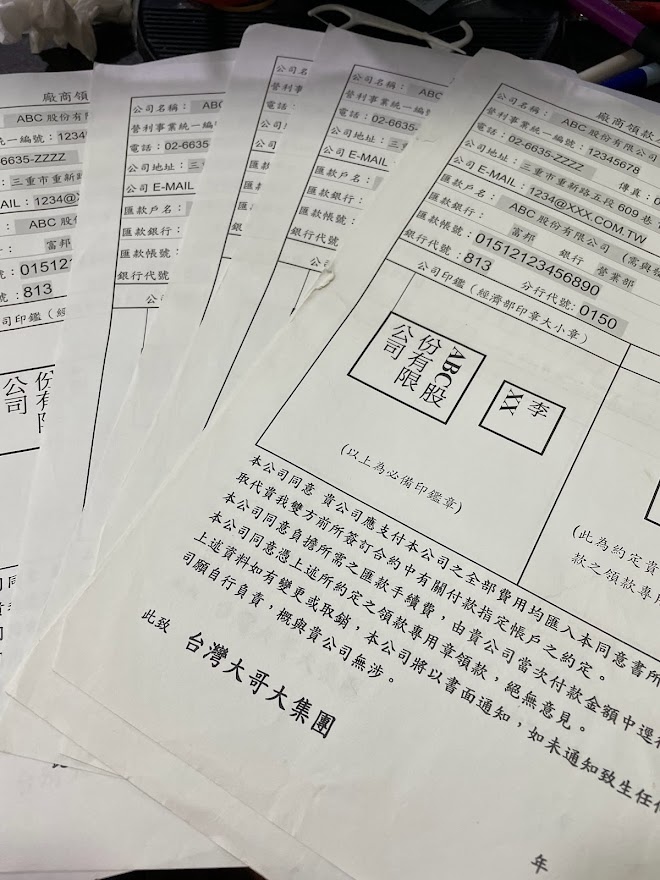 廠商領
ABC 股份有
統一編號：1234
6635-ZZZZ
三重市重新路
AIL：1234@
ABC 股份
富邦
015121
號：813
公司印鑑（經
份有限
公司
公司名稱：ABC
營利事業統一編
電話：02-6635-
公司地址：三重
公司 E-MAIL
匯款戶名：
匯款銀行：
匯款帳號：
銀行代號
公司名
營利事
電話：
公司
公司名稱：ABC
營利事業統一編
電話：02-6635
公司地址：三
公司 E-MAIL
匯款戶名：
匯款銀行：
匯款帳號：
銀行代號：
廠商領款
公司名稱：ABC 股份有限公司
營利事業統一編號：12345678
電話：02-6635-ZZZZ 傳真：0
公司地址：三重市重新路五段 609 巷
公司 E-MAIL：1234@XXX.COM.TW
匯款戶名：ABC 股份有限公司 （需與
匯款銀行：富邦 銀行 營業部
匯款帳號：01512123456890
銀行代號：813 分行代號：0150
公司印鑑（經濟部印章大小章）
ABC股
份有限
公司
李
XX
（以上為必備印鑑章）
（此為約定貴
款之領款專用
本公司同意 貴公司應支付本公司之全部費用均匯入本同意書所
取代貴我雙方前所簽訂合約中有關付款指定帳戶之約定。
本公司同意負擔所需之匯款手續費，由貴公司當次付款金額中逕行
本公司同意憑上述所約定之領款專用章領款，絕無意見。
上述資料如有變更或取銷，本公司將以書面通知，如未通知致生任何
司願自行負責，概與貴公司無涉。
此致 台灣大哥大集團
年